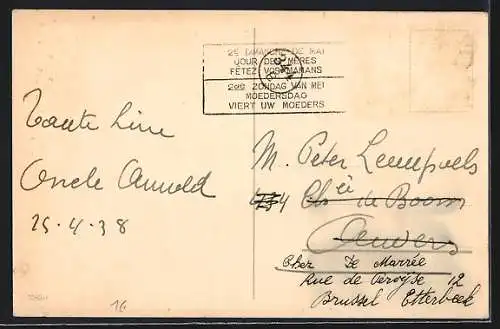 2E DIMANCHE DE MAI
JOUR DES MERES
FETEZ VOS MAMANS
2DE ZONDAG VAN MEI
MOEDERSDAG
VIERT UW MOEDERS
Tante Line
Oncle Arnold
25.4.38
M. Peter
Chée de Boom
Anvers
Chez De Marrée
Rue de 12
Brussel Etterbeek
16